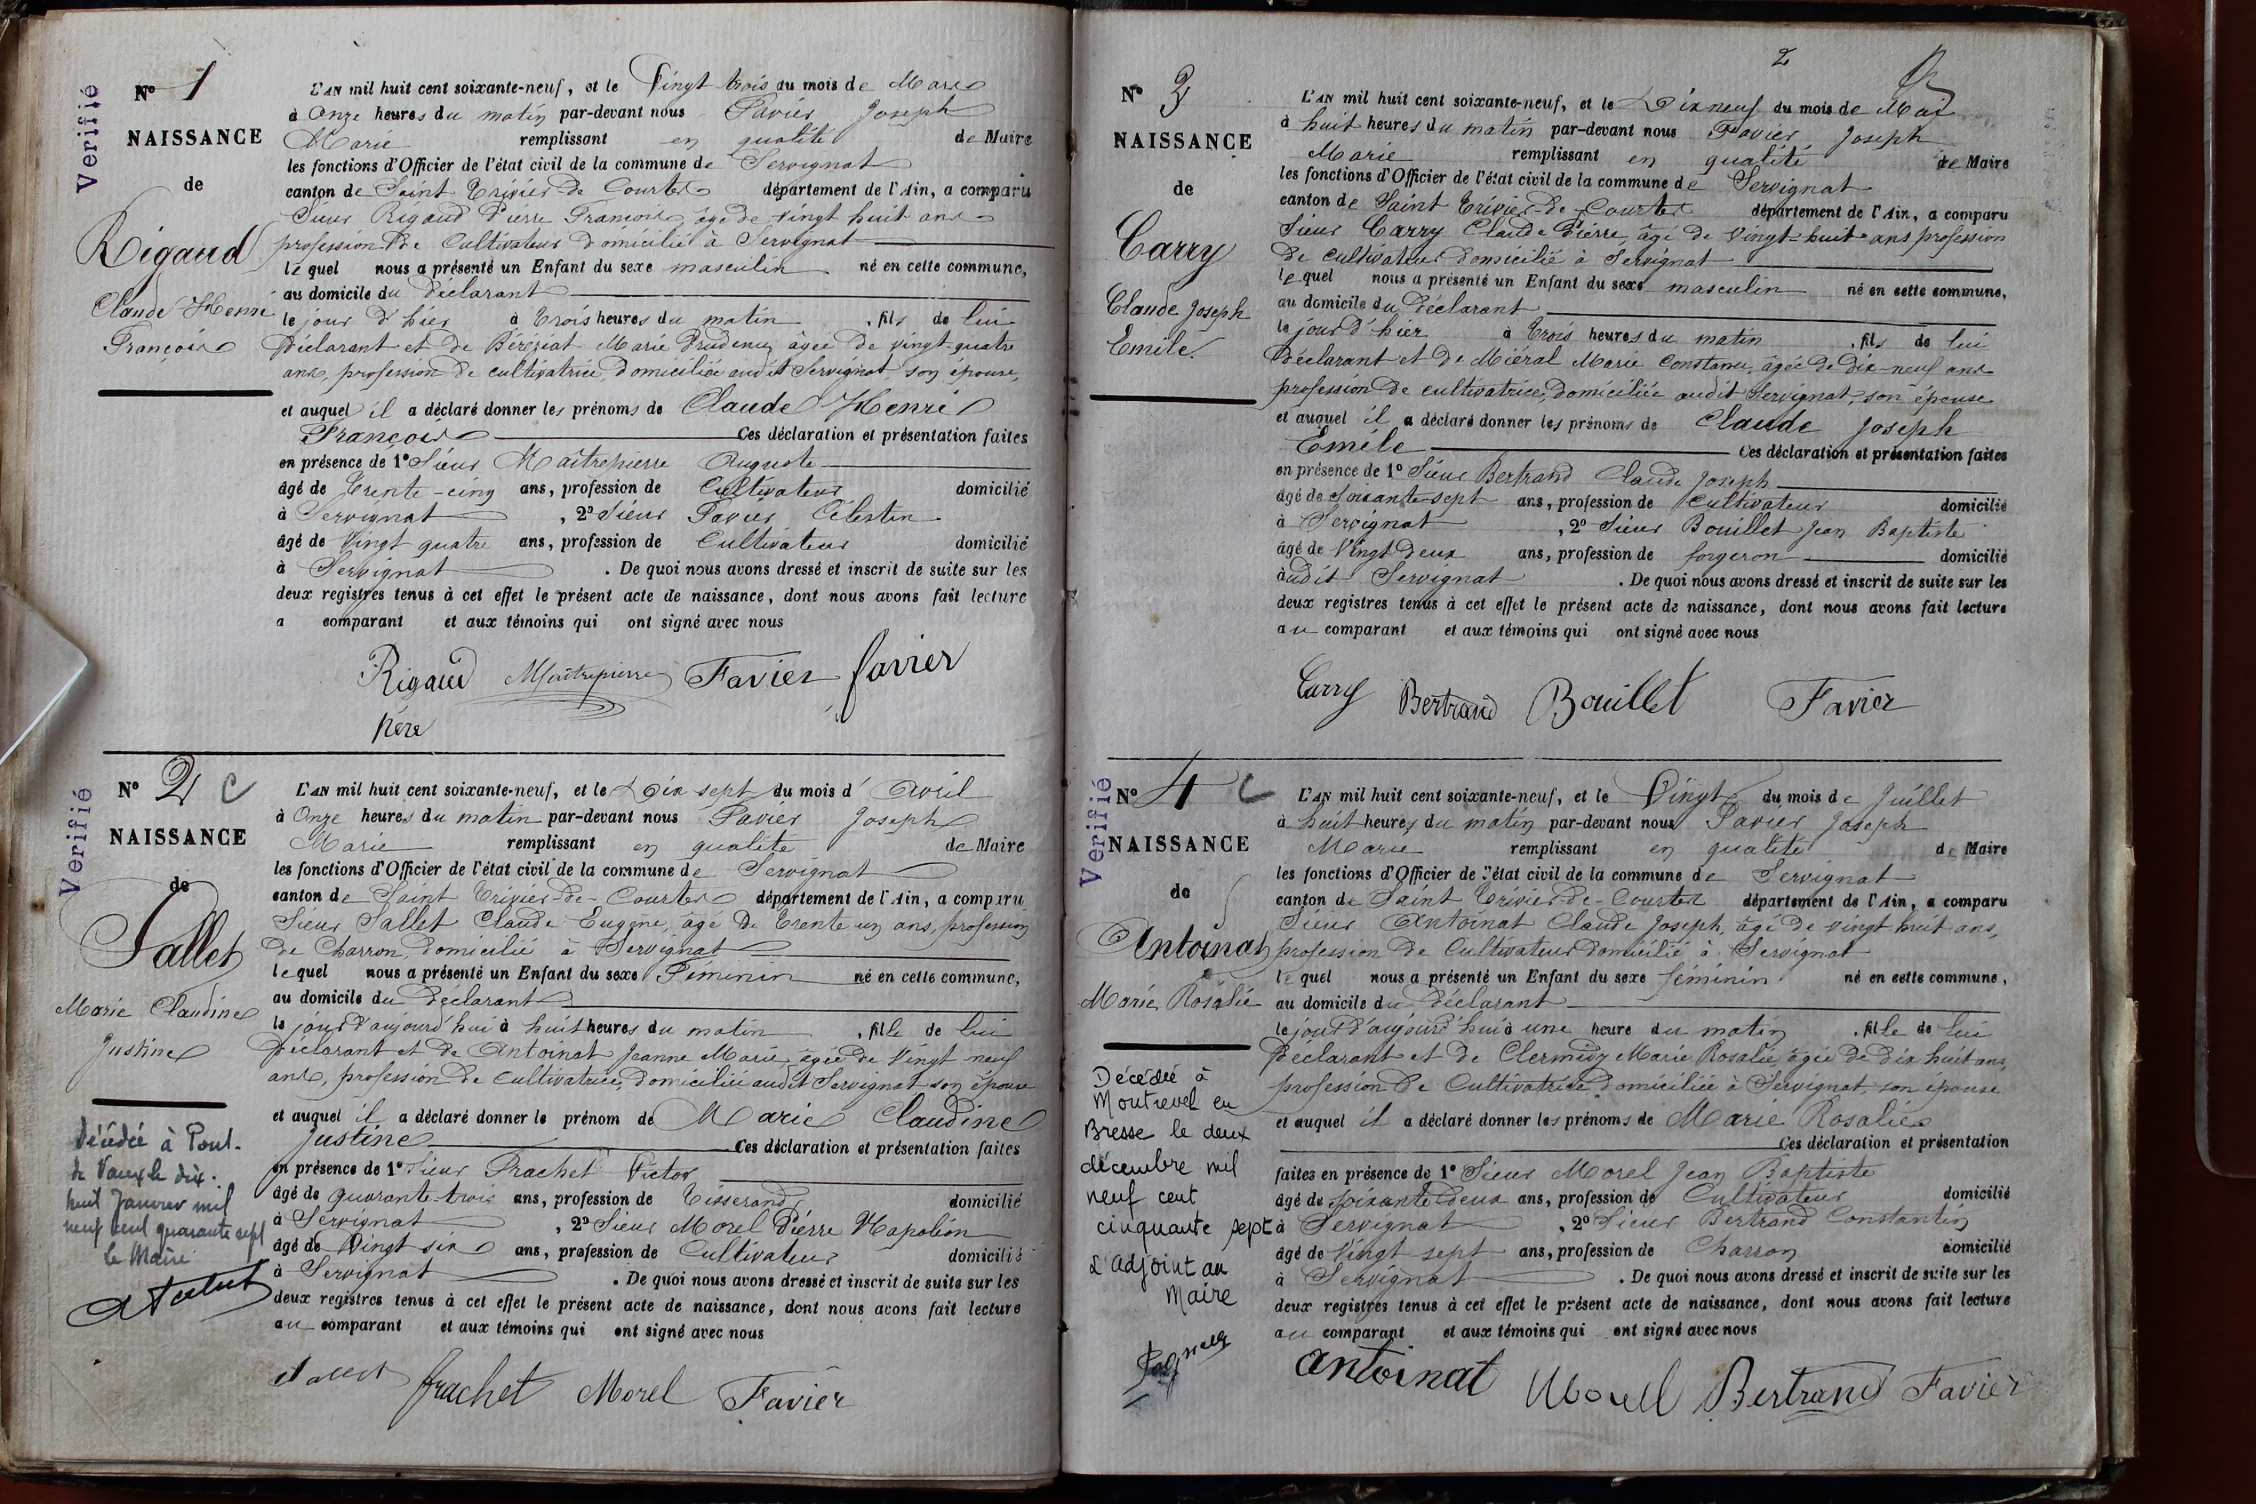 Verifié
N° 1
NAISSANCE
de
Rigaud
Claude Henri
François
L'AN mil huit cent soixante-neuf, et le Vingt trois du mois de Mars
à Onze heures du matin par-devant nous Favier Joseph
Marie remplissant en qualité de Maire
les fonctions d'Officier de l'état civil de la commune de Servignat
canton de Saint Trivier-de-Courtes département de l'Ain, a comparu
Sieur Rigaud Pierre François, âgé de vingt huit ans
profession de Cultivateur domicilié à Servignat
le quel nous a présenté un Enfant du sexe masculin né en cette commune,
au domicile du déclarant
le jour d'hier à trois heures du matin, fils de lui
déclarant et de Béréziat Marie Prudence âgée de vingt-quatre
ans, profession de cultivatrice, domiciliée audit Servignat, son épouse,
et auquel il a déclaré donner les prénoms de Claude Henri
François Ces déclaration et présentation faites
en présence de 1° Sieur Maîtrepierre Auguste
âgé de Trente-cinq ans, profession de Cultivateur domicilié
à Servignat, 2° Sieur Favier Célestin
âgé de Vingt quatre ans, profession de Cultivateur domicilié
à Servignat. De quoi nous avons dressé et inscrit de suite sur les
deux registres tenus à cet effet le présent acte de naissance, dont nous avons fait lecture
a comparant et aux témoins qui ont signé avec nous
Rigaud Maîtrepierre Favier favier
père
Verifié
N° 2 C
NAISSANCE
de
Sallet
Marie Claudine
Justine
Décédée à Pont-
de Vaux le dix-
huit Janvier mil
neuf cent quarante sept
le Maire
L'AN mil huit cent soixante-neuf, et le Dix sept du mois d'Avril
à Onze heures du matin par-devant nous Favier Joseph
Marie remplissant en qualité de Maire
les fonctions d'Officier de l'état civil de la commune de Servignat
canton de Saint Trivier-de-Courtes département de l'Ain, a comparu
Sieur Sallet Claude Eugène, âgé de Trente un ans, profession
de Charron, domicilié à Servignat
le quel nous a présenté un Enfant du sexe Féminin né en cette commune,
au domicile du déclarant
le jour d'aujourd'hui à huit heures du matin, fille de lui
déclarant et de Antoinat Jeanne Marie, âgée de Vingt-neuf
ans, profession de Cultivatrice, domiciliée audit Servignat son épouse
et auquel il a déclaré donner le prénom de Marie Claudine
Justine Ces déclaration et présentation faites
en présence de 1° Sieur Frachet Victor
âgé de quarante-trois ans, profession de Tisserand domicilié
à Servignat, 2° Sieur Morel Pierre Napoléon
âgé de Vingt six ans, profession de Cultivateur domicilié
à Servignat. De quoi nous avons dressé et inscrit de suite sur les
deux registres tenus à cet effet le présent acte de naissance, dont nous avons fait lecture
au comparant et aux témoins qui ont signé avec nous
frachet Morel Favier
2
N° 3
NAISSANCE
de
Carry
Claude Joseph
Emile.
L'AN mil huit cent soixante-neuf, et le Dix neuf du mois de Mai
à huit heures du matin par-devant nous Favier Joseph
Marie remplissant en qualité de Maire
les fonctions d'Officier de l'état civil de la commune de Servignat
canton de Saint Trivier-de-Courtes département de l'Ain, a comparu
Sieur Carry Claude Pierre, âgé de Vingt-huit ans profession
de cultivateur domicilié à Servignat
le quel nous a présenté un Enfant du sexe masculin né en cette commune,
au domicile du déclarant
le jour d'hier à trois heures du matin, fils de lui
déclarant et de Miéral Marie Constance, âgée de Dix-neuf ans
profession de cultivatrice, domiciliée audit Servignat, son épouse
et auquel il a déclaré donner les prénoms de Claude Joseph
Emile Ces déclaration et présentation faites
en présence de 1° Sieur Bertrand Claude Joseph
âgé de Soixante-sept ans, profession de Cultivateur domicilié
à Servignat, 2° Sieur Bouillet Jean Baptiste
âgé de Vingt Deux ans, profession de forgeron domicilié
audit Servignat. De quoi nous avons dressé et inscrit de suite sur les
deux registres tenus à cet effet le présent acte de naissance, dont nous avons fait lecture
au comparant et aux témoins qui ont signé avec nous
Carry Bertrand Bouillet Favier
Verifié
N° 4 C
NAISSANCE
de
Antoinat
Marie Rosalie
Décédée à
Montrevel en
Bresse le deux
décembre mil
neuf cent
cinquante sept
L'adjoint au
Maire
L'AN mil huit cent soixante-neuf, et le Vingt du mois de Juillet
à huit heures du matin par-devant nous Favier Joseph
Marie remplissant en qualité de Maire
les fonctions d'Officier de l'état civil de la commune de Servignat
canton de Saint Trivier-de-Courtes département de l'Ain, a comparu
Sieur Antoinat Claude Joseph, âgé de vingt huit ans,
profession de Cultivateur domicilié à Servignat
le quel nous a présenté un Enfant du sexe féminin né en cette commune,
au domicile du déclarant
le jour d'aujourd'hui à une heure du matin, fille de lui
déclarant et de Clermidy Marie Rosalie, âgée de dix huit ans,
profession de Cultivatrice domiciliée à Servignat, son épouse
et auquel il a déclaré donner les prénoms de Marie Rosalie
Ces déclaration et présentation
faites en présence de 1° Sieur Morel Jean Baptiste
âgé de soixante deux ans, profession de Cultivateur domicilié
à Servignat, 2° Sieur Bertrand Constantin
âgé de Vingt sept ans, profession de Charron domicilié
à Servignat. De quoi nous avons dressé et inscrit de suite sur les
deux registres tenus à cet effet le présent acte de naissance, dont nous avons fait lecture
au comparant et aux témoins qui ont signé avec nous
antoinat Morel Bertrand Favier